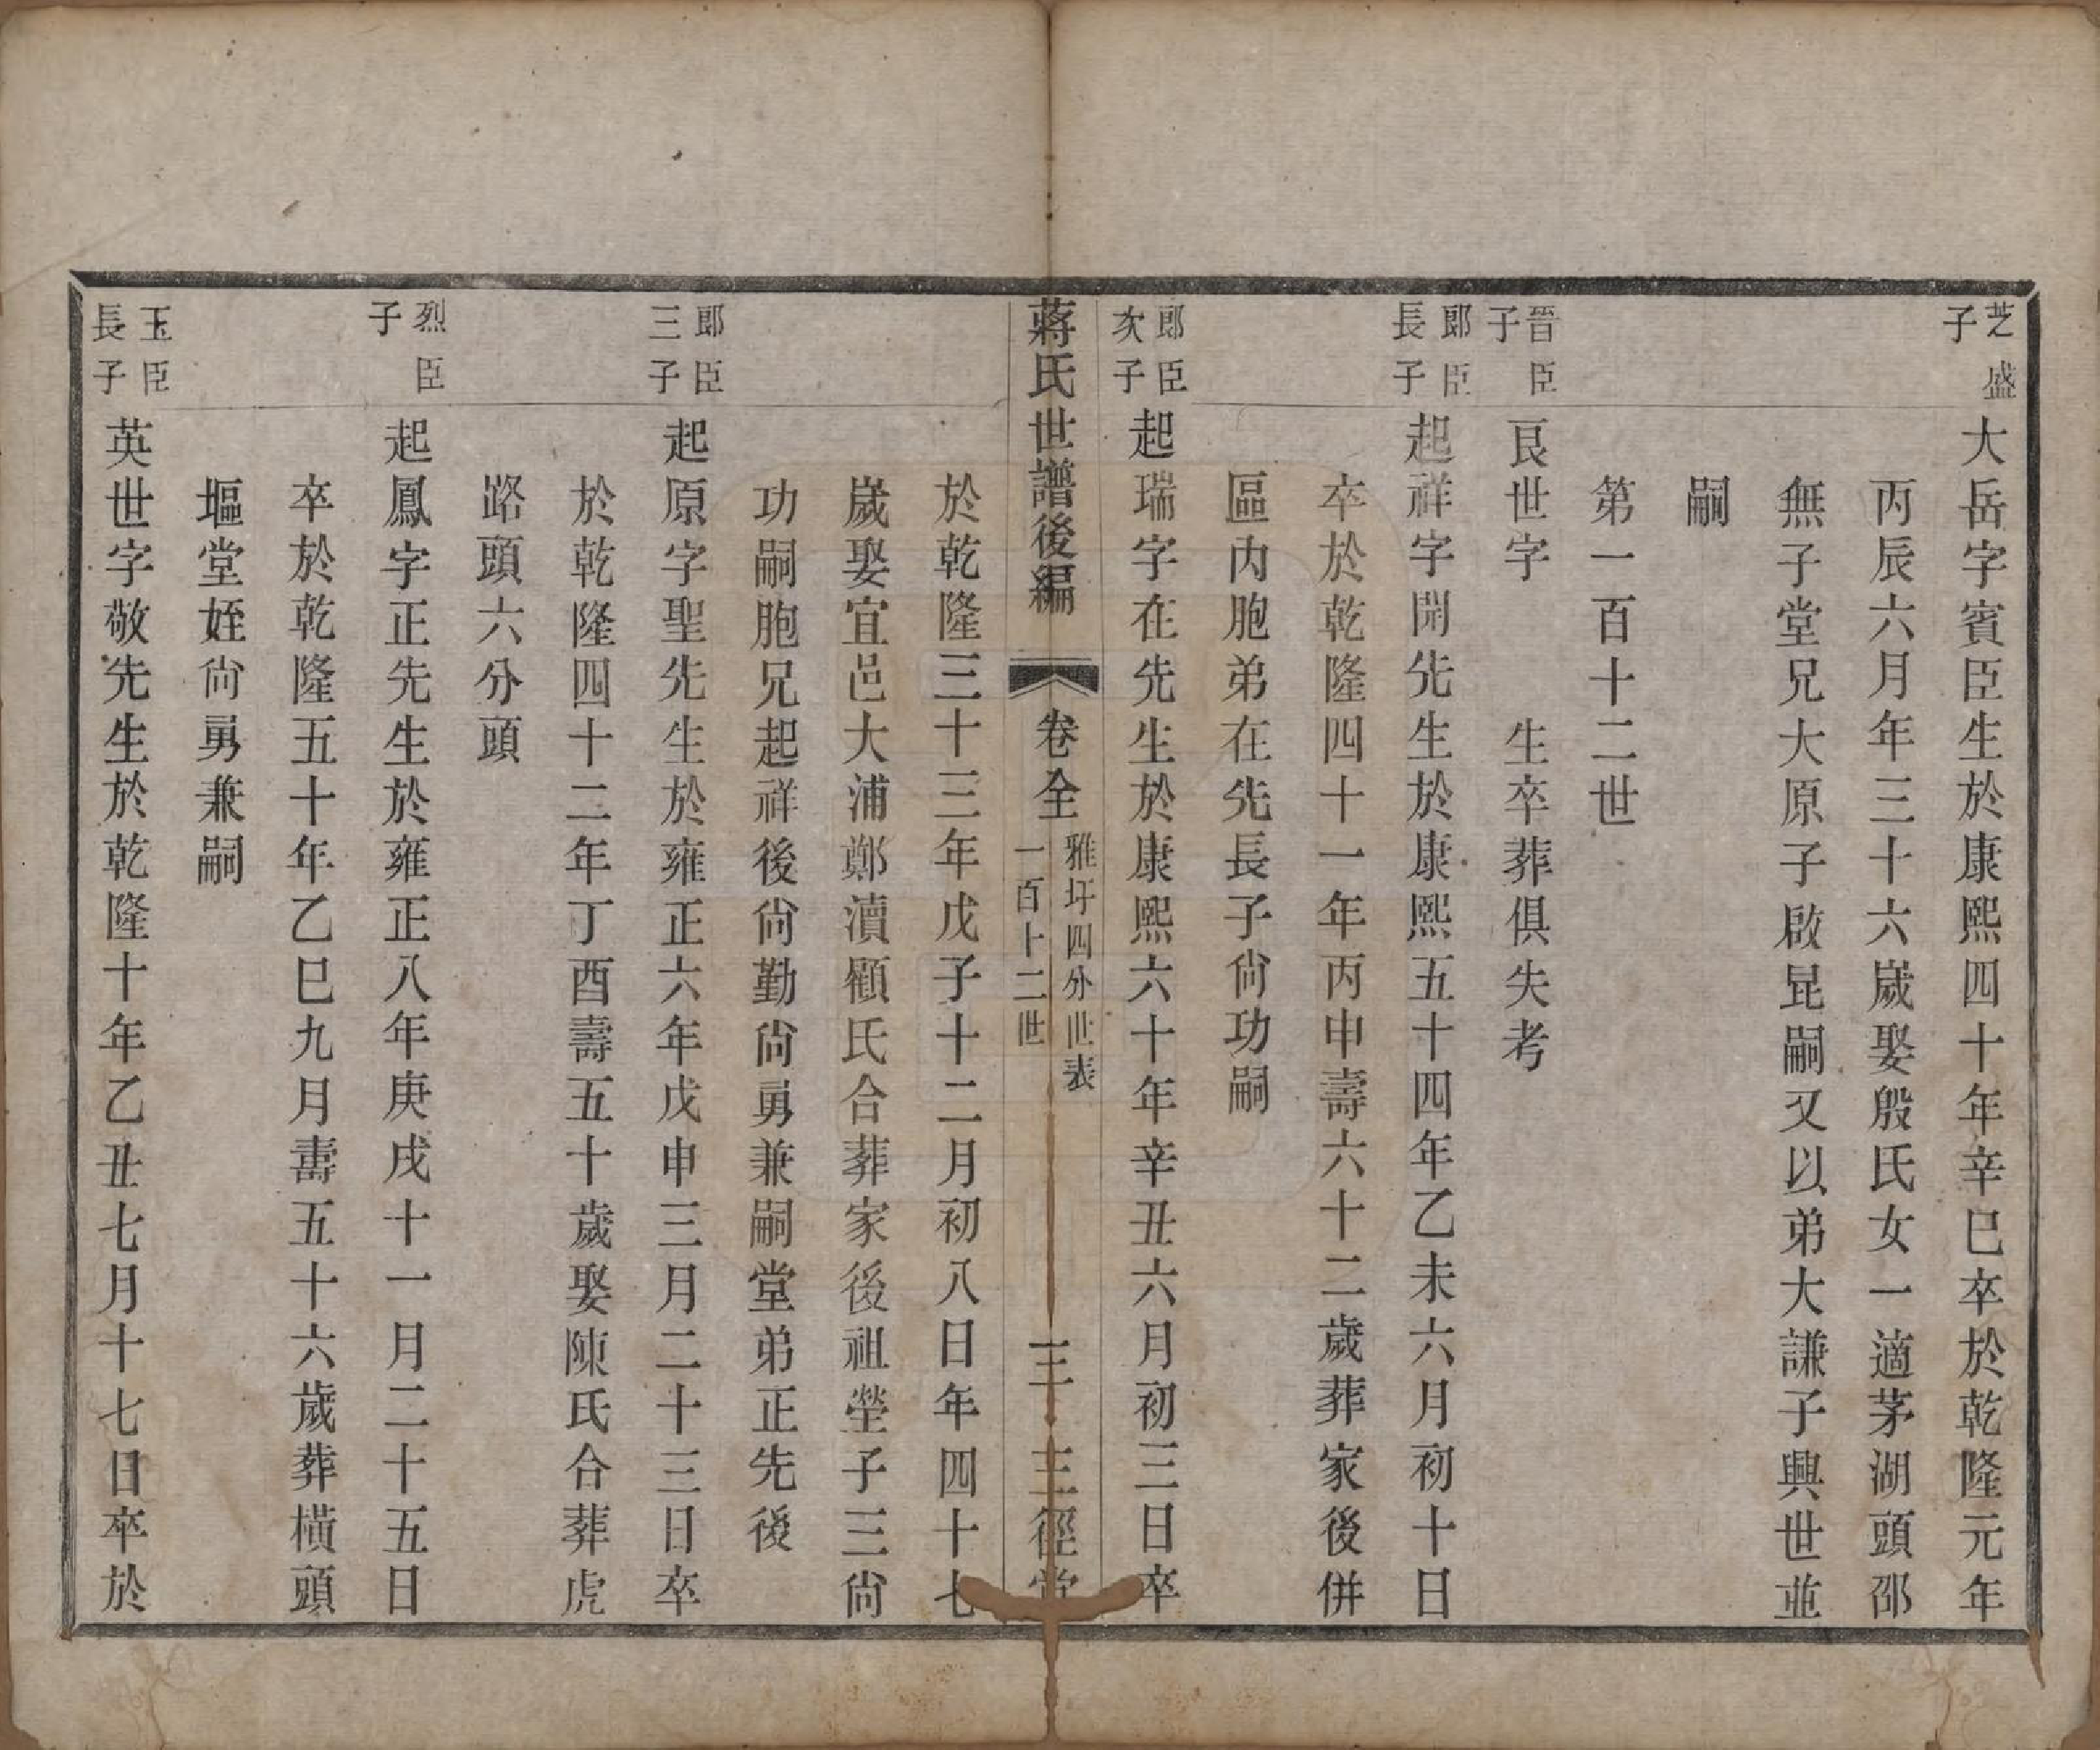 芝盛子
大岳字賓臣生於康熙四十年辛巳卒於乾隆元年
丙辰六月年三十六歲娶殷氏女一適茅湖頭邵
無子堂兄大原子啟昆嗣又以弟大謙子興世並
嗣
第一百十二世
晉臣子
艮世字 生卒葬俱失考
郎臣長子
起祥字開先生於康熙五十四年乙未六月初十日
卒於乾隆四十一年丙申壽六十二歲葬家後併
區內胞弟在先長子尙功嗣
郎臣次子
起瑞字在先生於康熙六十年辛丑六月初三日卒
蔣氏世譜後編
卷全
雅圩四分世表
一百十二世
三
三徑堂
於乾隆三十三年戊子十二月初八日年四十七
歲娶宜邑大浦鄭瀆顧氏合葬家後祖塋子三尙
功嗣胞兄起祥後尙勤尙勇兼嗣堂弟正先後
郎臣三子
起原字聖先生於雍正六年戊申三月二十三日卒
於乾隆四十二年丁酉壽五十歲娶陳氏合葬虎
路頭六分頭
烈臣子
起鳳字正先生於雍正八年庚戌十一月二十五日
卒於乾隆五十年乙巳九月壽五十六歲葬橫頭
塸堂姪尙勇兼嗣
玉臣長子
英世字敬先生於乾隆十年乙丑七月十七日卒於